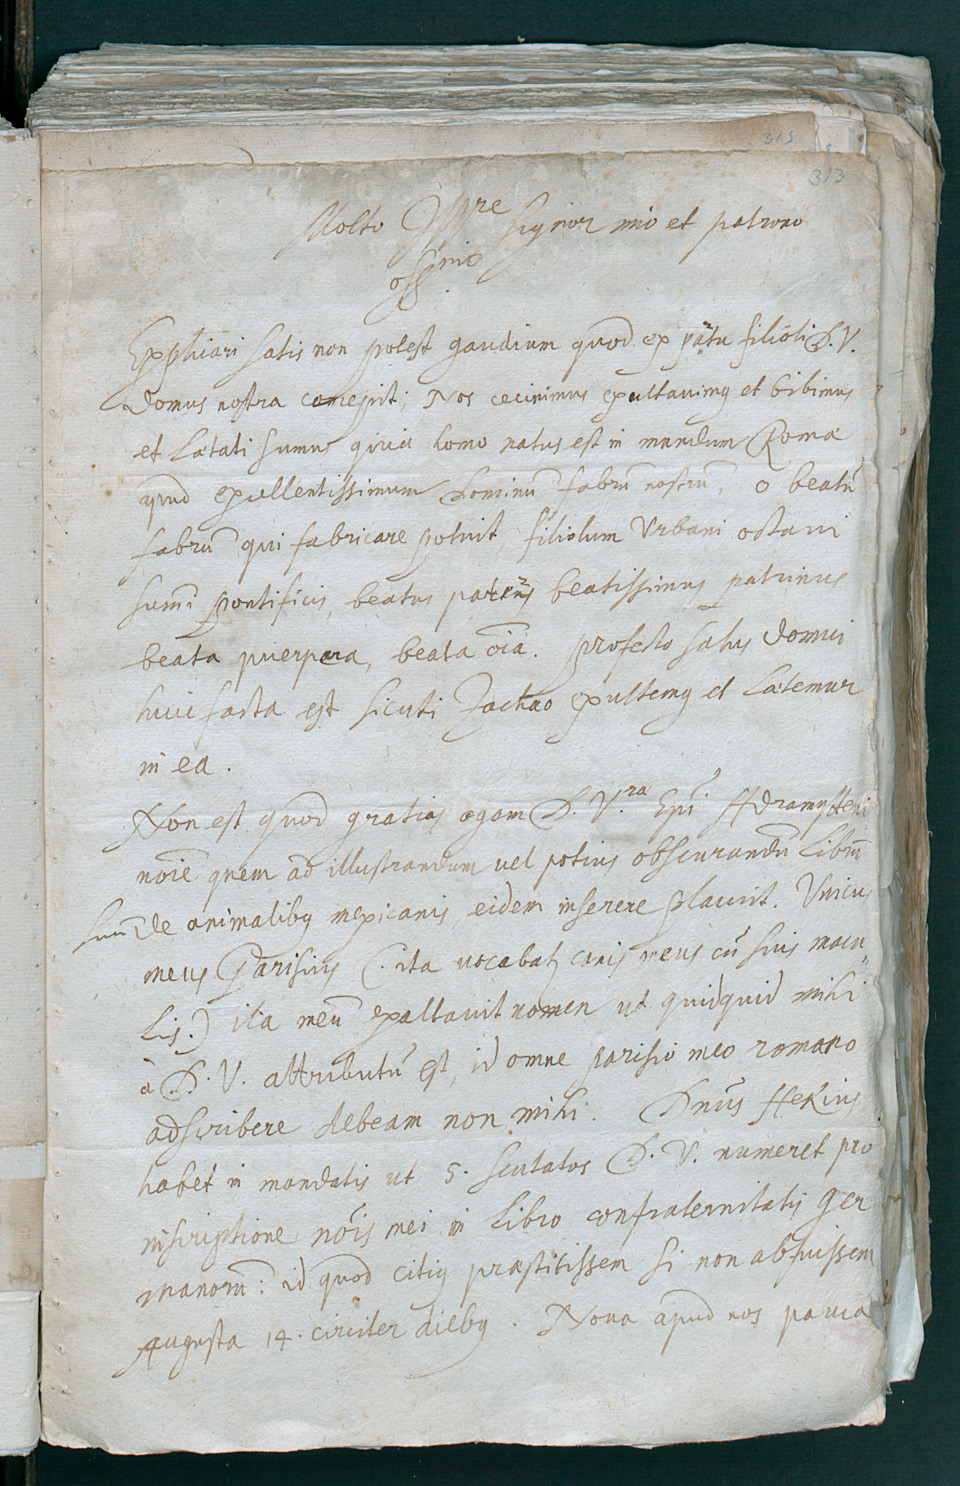 315
313
Molto Ill.re signor mio et patrono
oss.mo
Explicari satis non potest gaudium quod ex partu filioli D. V.
domus nostra concepit; Nos cecinimus exultauimq et bibimus
et Lætati sumus quia homo natus est in mundum Romæ
apud excellentissimum Dominū fabrū nostrū, o beatū
fabrū qui fabricare potuit filiolum Vrbani octaui
sumi pontificis, beatus beatissimus patrinus
beata puerpera, beata oīa. profecto salus domui
huic facta est sicuti Zachæo exultemq et Lætemur
in ea.
Non est quod gratias agam D. V.ra Epi Adramytteni
noīe quem ad illustrandum uel potius obscurandū Librū
suū de animalibq mexicanis eidem inserere placuit. Vnicus
meus Parisius (ita uocabat canis meus cū suis macu
Lis.) ita meū exaltauit nomen ut quidquid mihi
à D. V. attributū est, id omne parisio meo romano
adscribere debeam non mihi. Dnūs
habet in mandatis ut 5. scutatos D. V. numeret pro
inscriptione noīs mei in Libro confraternitatis Ger
manorū: id quod citiq præstitissem si non abfuissem
Augusta 14. circiter diebq. Noua apud nos pauca